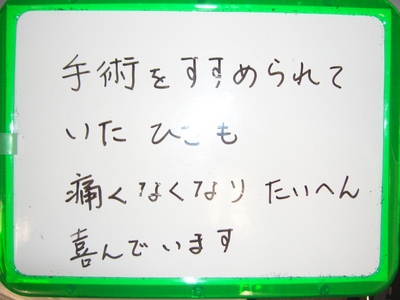 手術をすすめられて
いた ひざも
痛くなくなり たいへん
喜んでいます